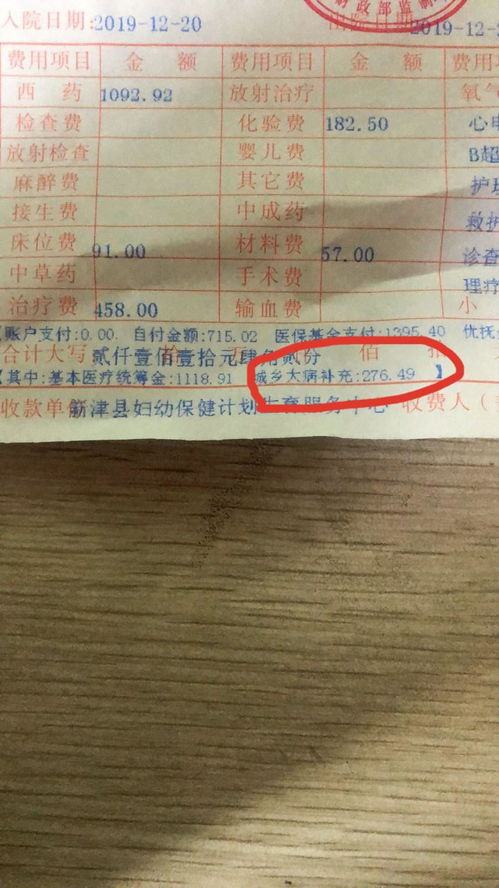 财政部监制
入院日期:2019-12-20 2019-12-2
费用项目 金 额 费用项目 金 额 费用项
西 药 1092.92 放射治疗 氧气
检查费 化验费 182.50 心电
放射检查 婴儿费 B超
麻醉费 其它费 护理
接生费 中成药 救护
床位费 91.00 材料费 57.00 诊查
中草药 手术费 理疗
治疗费 458.00 输血费 小
【账户支付:0.00 自付金额:715.02 医保基金支付:1395.40 优抚
合计大写 贰仟壹佰壹拾元肆角贰份 佰 拾
【其中:基本医疗统筹金:1118.91 城乡大病补充:276.49 】
收款单 津县妇幼保健计划生育服务中心 收费人(